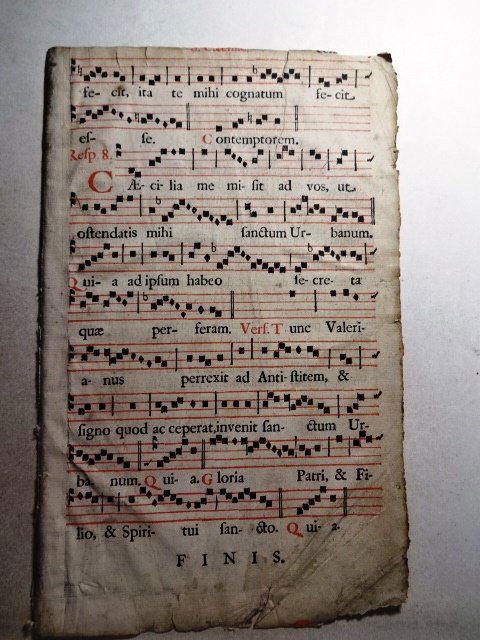 fe- cit, ita te mihi cognatum fe-cit
es- se. Contemptorem.
Resp. 8.
CÆ-ci-lia me mi-sit ad vos, ut
ostendatis mihi sanctum Ur-banum.
Qui-a ad ipsum habeo se-cre-ta
quæ per-feram. Vers. Tunc Valeri-
a-nus perrexit ad Anti-stitem, &
signo quod acceperat, invenit san-ctum Ur-
ba-num. Qui-a. Gloria Patri, & Fi-
lio, & Spiri-tui san-cto. Qui-a.
FINIS.